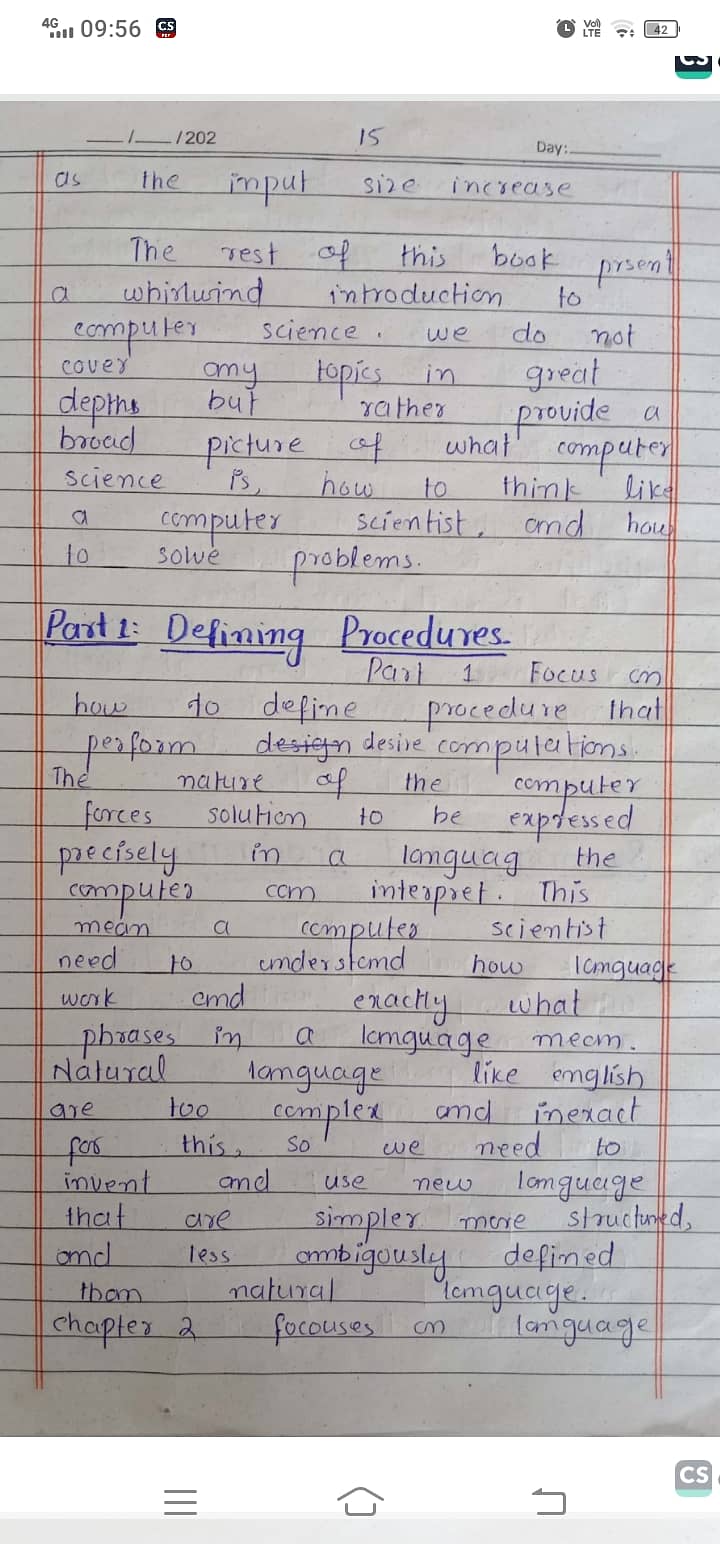 4G 09:56 CS PDF Vo) LTE 42
CS
__/__/202 15 Day:
as the input size increase
The rest of this book prsent
a whirlwind introduction to
computer science. we do not
cover any topics in great
depths but rather provide a
broad picture of what computer
science is, how to think like
a computer scientist, and how
to solve problems.
Part 1: Defining Procedures.
Part 1 Focus on
how to define procedure that
perform design desire computations.
The nature of the computer
forces solution to be expressed
precisely in a languag the
computer can interpret. This
mean a computer scientist
need to understand how language
work and exactly what
phrases in a language mean.
Natural language like english
are too complex and inexact
for this, so we need to
invent and use new language
that are simpler more structured,
and less ambigously defined
than natural language.
chapter 2 focouses on language
CS